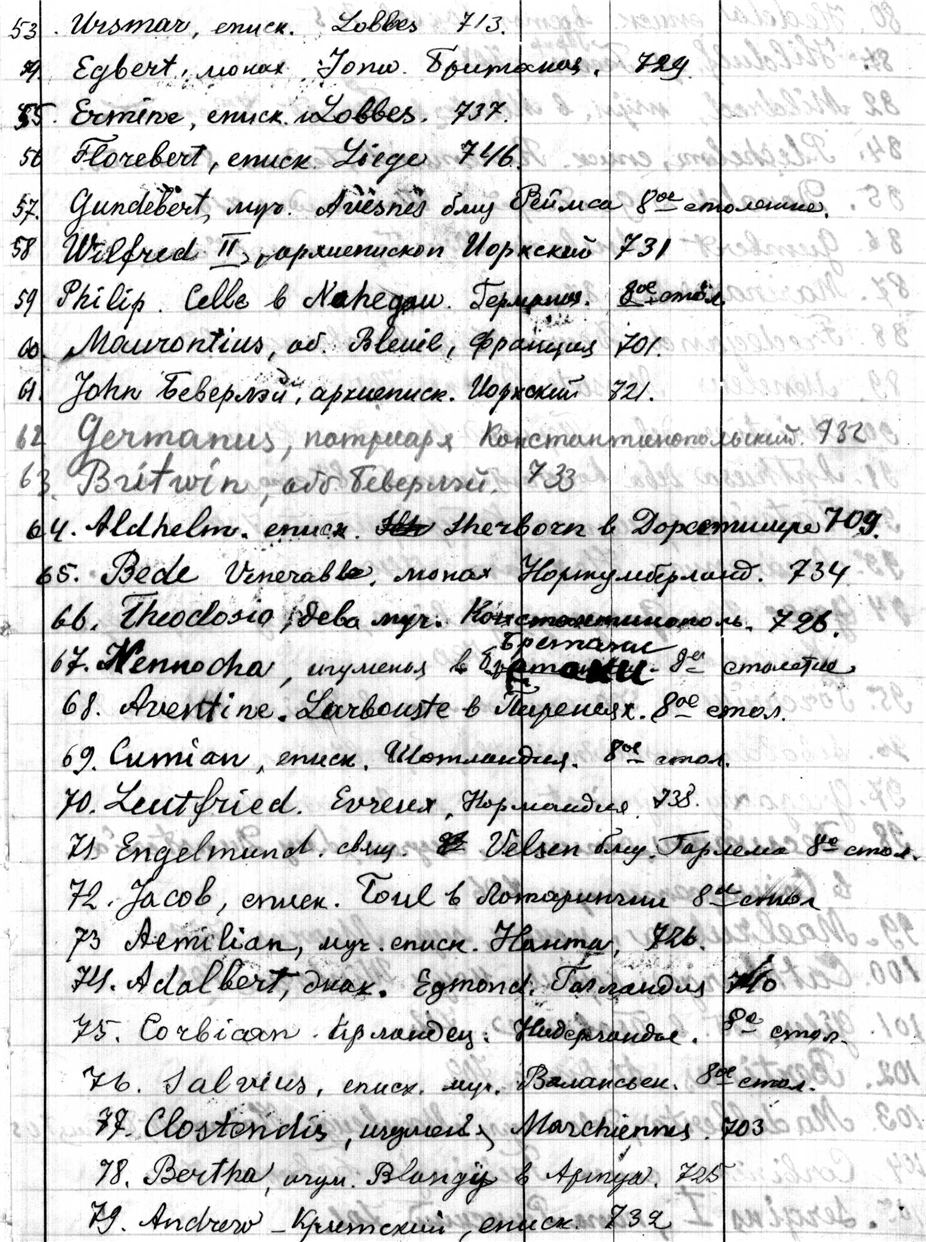 53. Ursmar, еписк. Lobbes 713.
54 Egbert, монах Јона Британия. 729
55. Ermine, еписк. Lobbes. 737.
56 Florebert, еписк. Liege 746.
57. Gundebert, муч. Avesnes близ Реймса 8ое столетие.
58 Wilfred II, архиепископ Иоркский 731
59 Philip. Celle в Nahegau. Германия. 8ое стол
60. Maurontius, аб. Франция 701.
61. John Беверлэй, архиеписк. Иоркский 721.
62 Germanus, патриарх Константинопольский. 732
63. Britwin, абб. Беверлэй. 733
64. Aldhelm. еписк. Sherborn в Дорсетшире 709.
65. Bede Venerable, монах Нортумберланд. 734
66. Theodosia, дева муч. Константинополь. 726.
Бретани
67. Nennocha, игуменья в 8ое столетие
68. Aventine. Larbouste в Пиренеях. 8ое стол.
69. Cumian, еписк. Шотландия. 8ое стол.
70. Leutfried. Evreux, Нормандия 738.
71. Engelmund. свящ. Velsen близ. Гарлема 8ое стол.
72. Jacob, еписк. Toul в Лотарингии 8ое стол
73 Aemilian, муч. еписк. Нанта, 726.
74. Adalbert, диак. Egmond. Голландия 740
75. Corbican. Ирландец. Нидерланды. 8ое стол.
76. Salvius, еписк. муч. Валансьен. 8ое стол.
77. Clostendis, игумен. Marchiennes. 703
78. Bertha, игум. Blangy в Артуа. 725
79. Andrew - Критский, еписк. 732